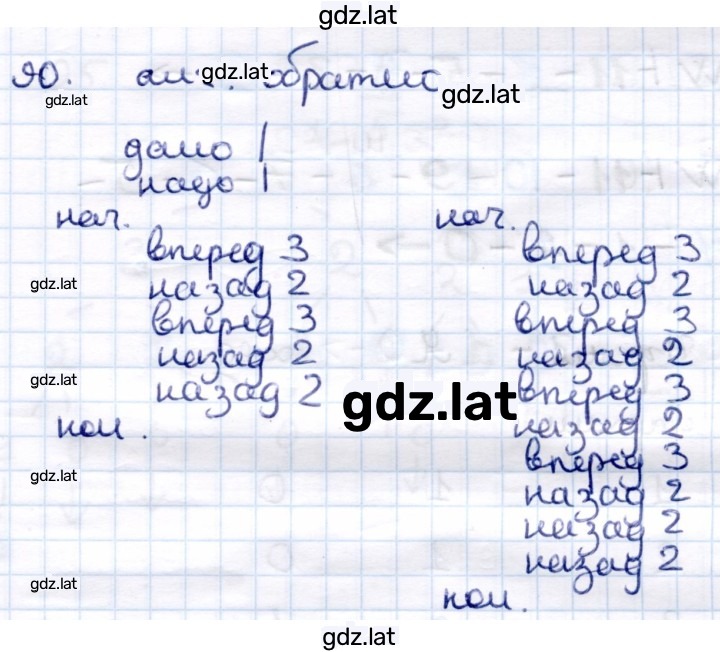 gdz.lat
90. алг. обратис
gdz.lat gdz.lat gdz.lat
дано |
надо |
нач.
вперед 3
назад 2
вперед 3
назад 2
назад 2
кон.
нач.
вперед 3
назад 2
вперед 3
назад 2
вперед 3
назад 2
вперед 3
назад 2
назад 2
назад 2
кон.
gdz.lat
gdz.lat
gdz.lat
gdz.lat
gdz.lat
gdz.lat